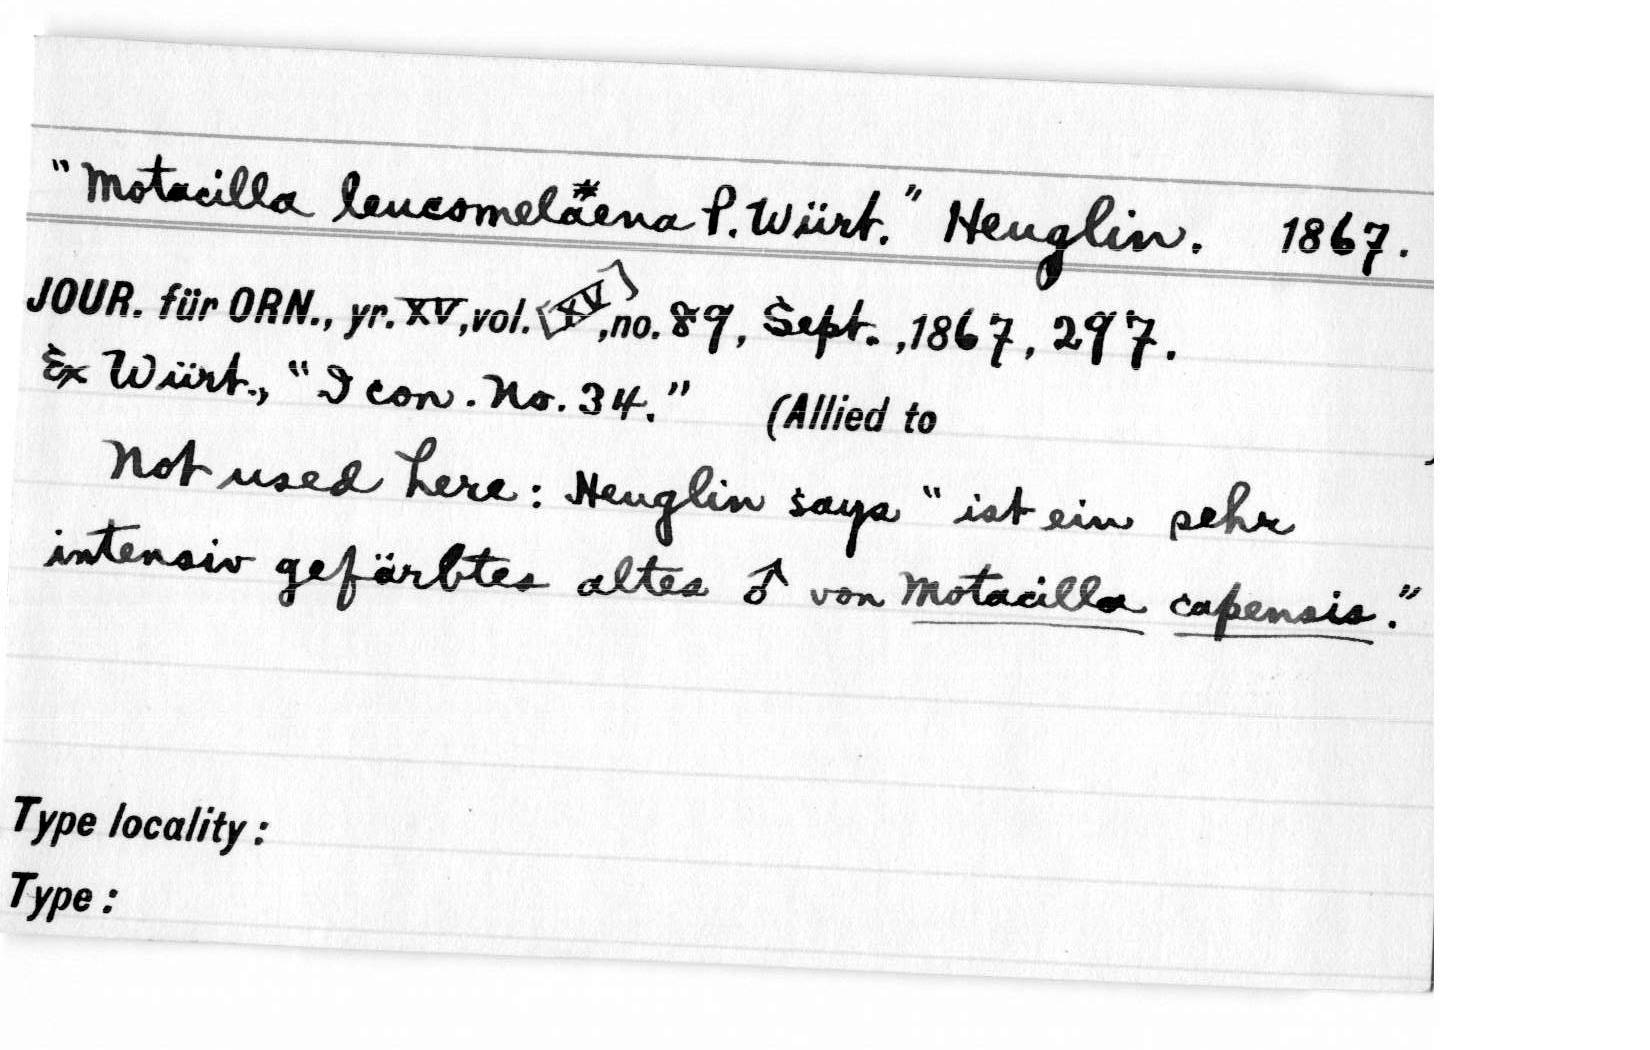 "Motacilla leucomelaena P. Würt." Heuglin. 1867.
JOUR. für ORN., yr. XV, vol. [XV], no. 89, Sept., 1867, 297.
Ex Würt., "Icon. No. 34." (Allied to )
Not used here: Heuglin says "ist ein sehr
intensiv gefärbtes altes ♂ von Motacilla capensis."
Type locality:
Type: